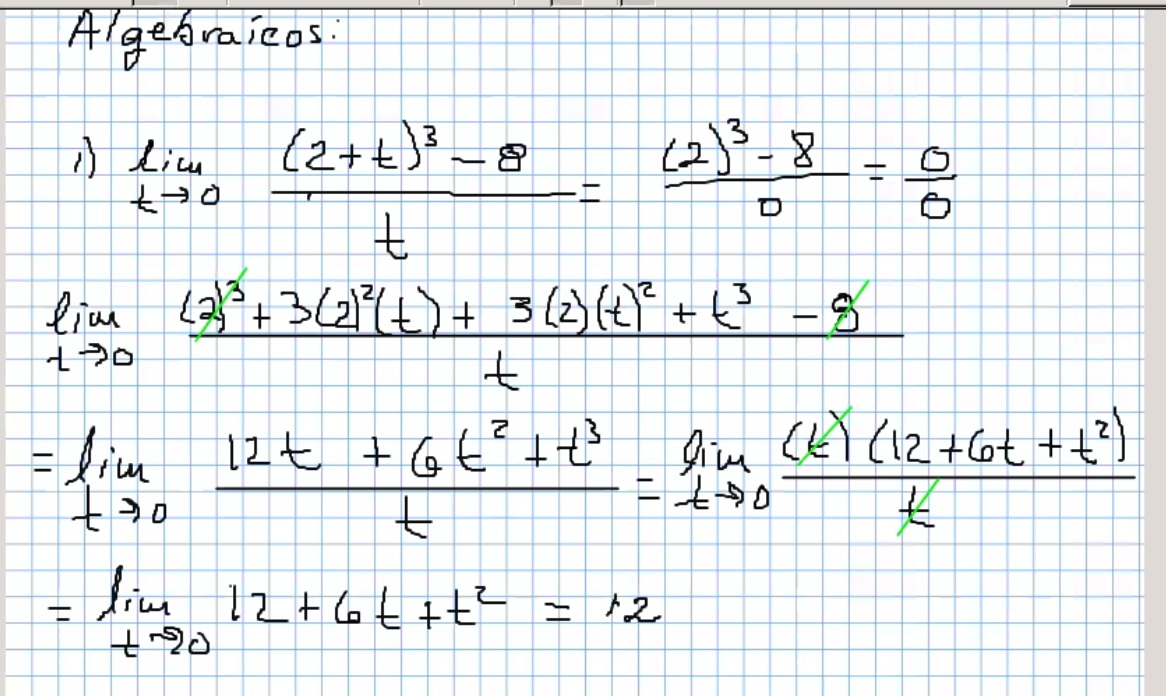 Algebraicos:
1) lim t→0 ((2+t)³ - 8)/t = ((2)³ - 8)/0 = 0/0
lim t→0 ((2)³ + 3(2)²(t) + 3(2)(t)² + t³ - 8)/t
= lim t→0 (12t + 6t² + t³)/t = lim t→0 ((t)(12+6t+t²))/t
= lim t→0 12+6t+t² = 12